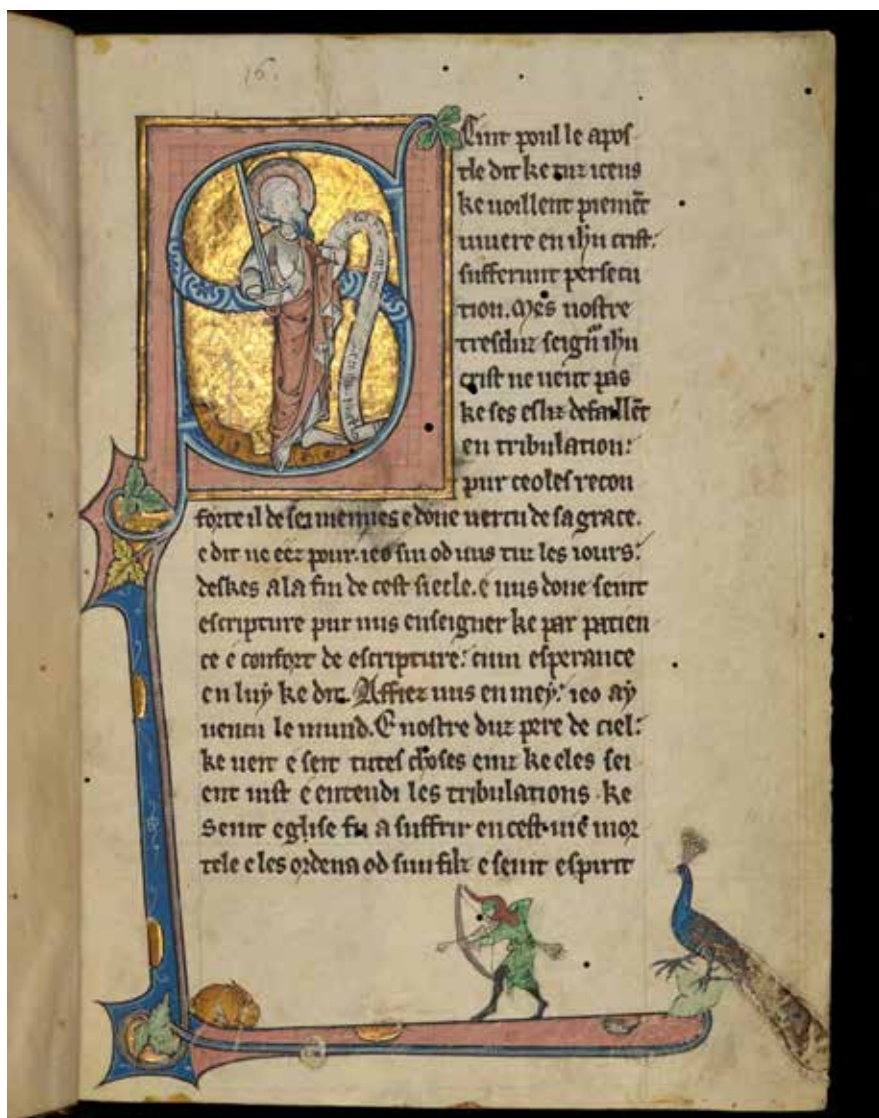 16.
Eint poul le apos
tle dit ke tuz iceus
ke uoillent piemēt
uiuere en ihū crist:
suffrerunt persecu
tion. Mes nostre
tresduz seign ihū
crist ne ueut pas
ke ses esliz defaillēt
en tribulation:
pur ceo les recon
forte il de sei meimes e done uertu de sa grace.
e dit ne eez pour. ieo sui od uus tuz les iours:
deskes a la fin de cest siecle. e nus done seint
escripture pur nus enseigner ke par patien
ce e confort de escripture: eum esperance
en luy ke dit. Affiez uus en mey: ieo ay
uencu le mund. E nostre duz pere de ciel:
ke ueit e seit tutes choses einz ke eles sei
ent uist e entendi les tribulations ke
seint eglise fu a suffrir en cest uie mor
tele e les ordena od sun filz e seint espirit